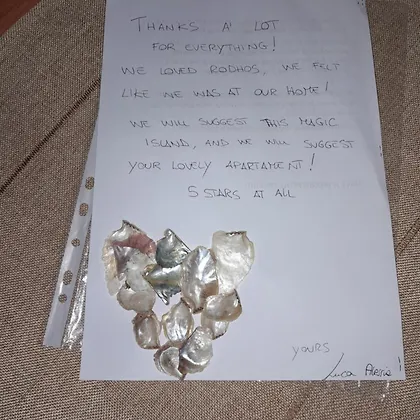 THANKS A' LOT
FOR EVERYTHING!
WE LOVED RODHOS, WE FELT
LIKE WE WAS AT OUR HOME!
WE WILL SUGGEST THIS MAGIC
ISLAND, AND WE WILL SUGGEST
YOUR LOVELY APARTAMENT!
5 STARS AT ALL
YOURS
Luca